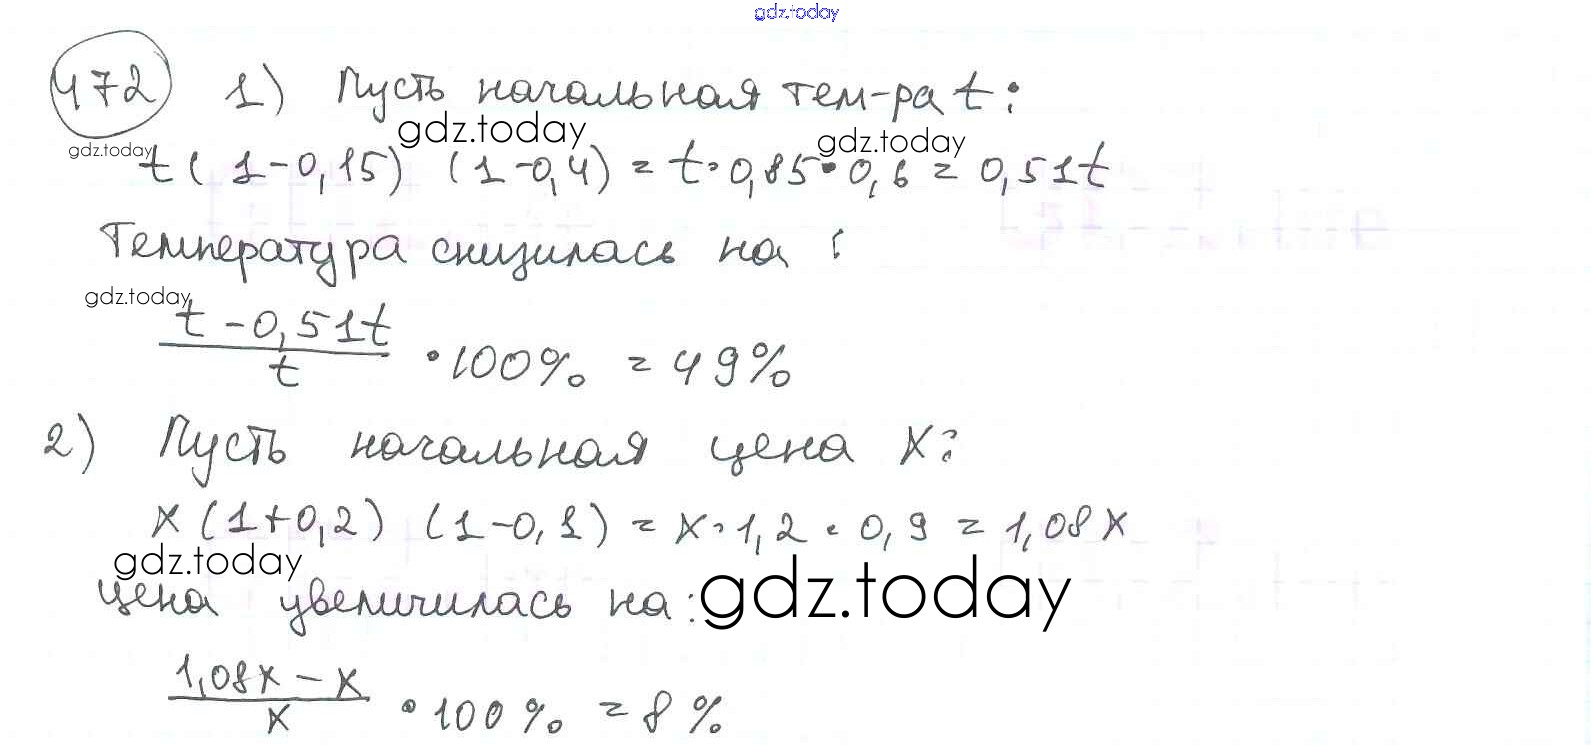 gdz.today
472 1) Пусть начальная тем-ра t:
gdz.today gdz.today
gdz.today
t(1-0,15) (1-0,4) = t·0,85·0,6 = 0,51t
Температура снизилась на:
gdz.today
t-0,51t
/ t · 100% = 49%
2) Пусть начальная цена x:
x(1+0,2) (1-0,1) = x·1,2·0,9 = 1,08x
gdz.today
цена увеличилась на: gdz.today
1,08x-x
/ x · 100% = 8%